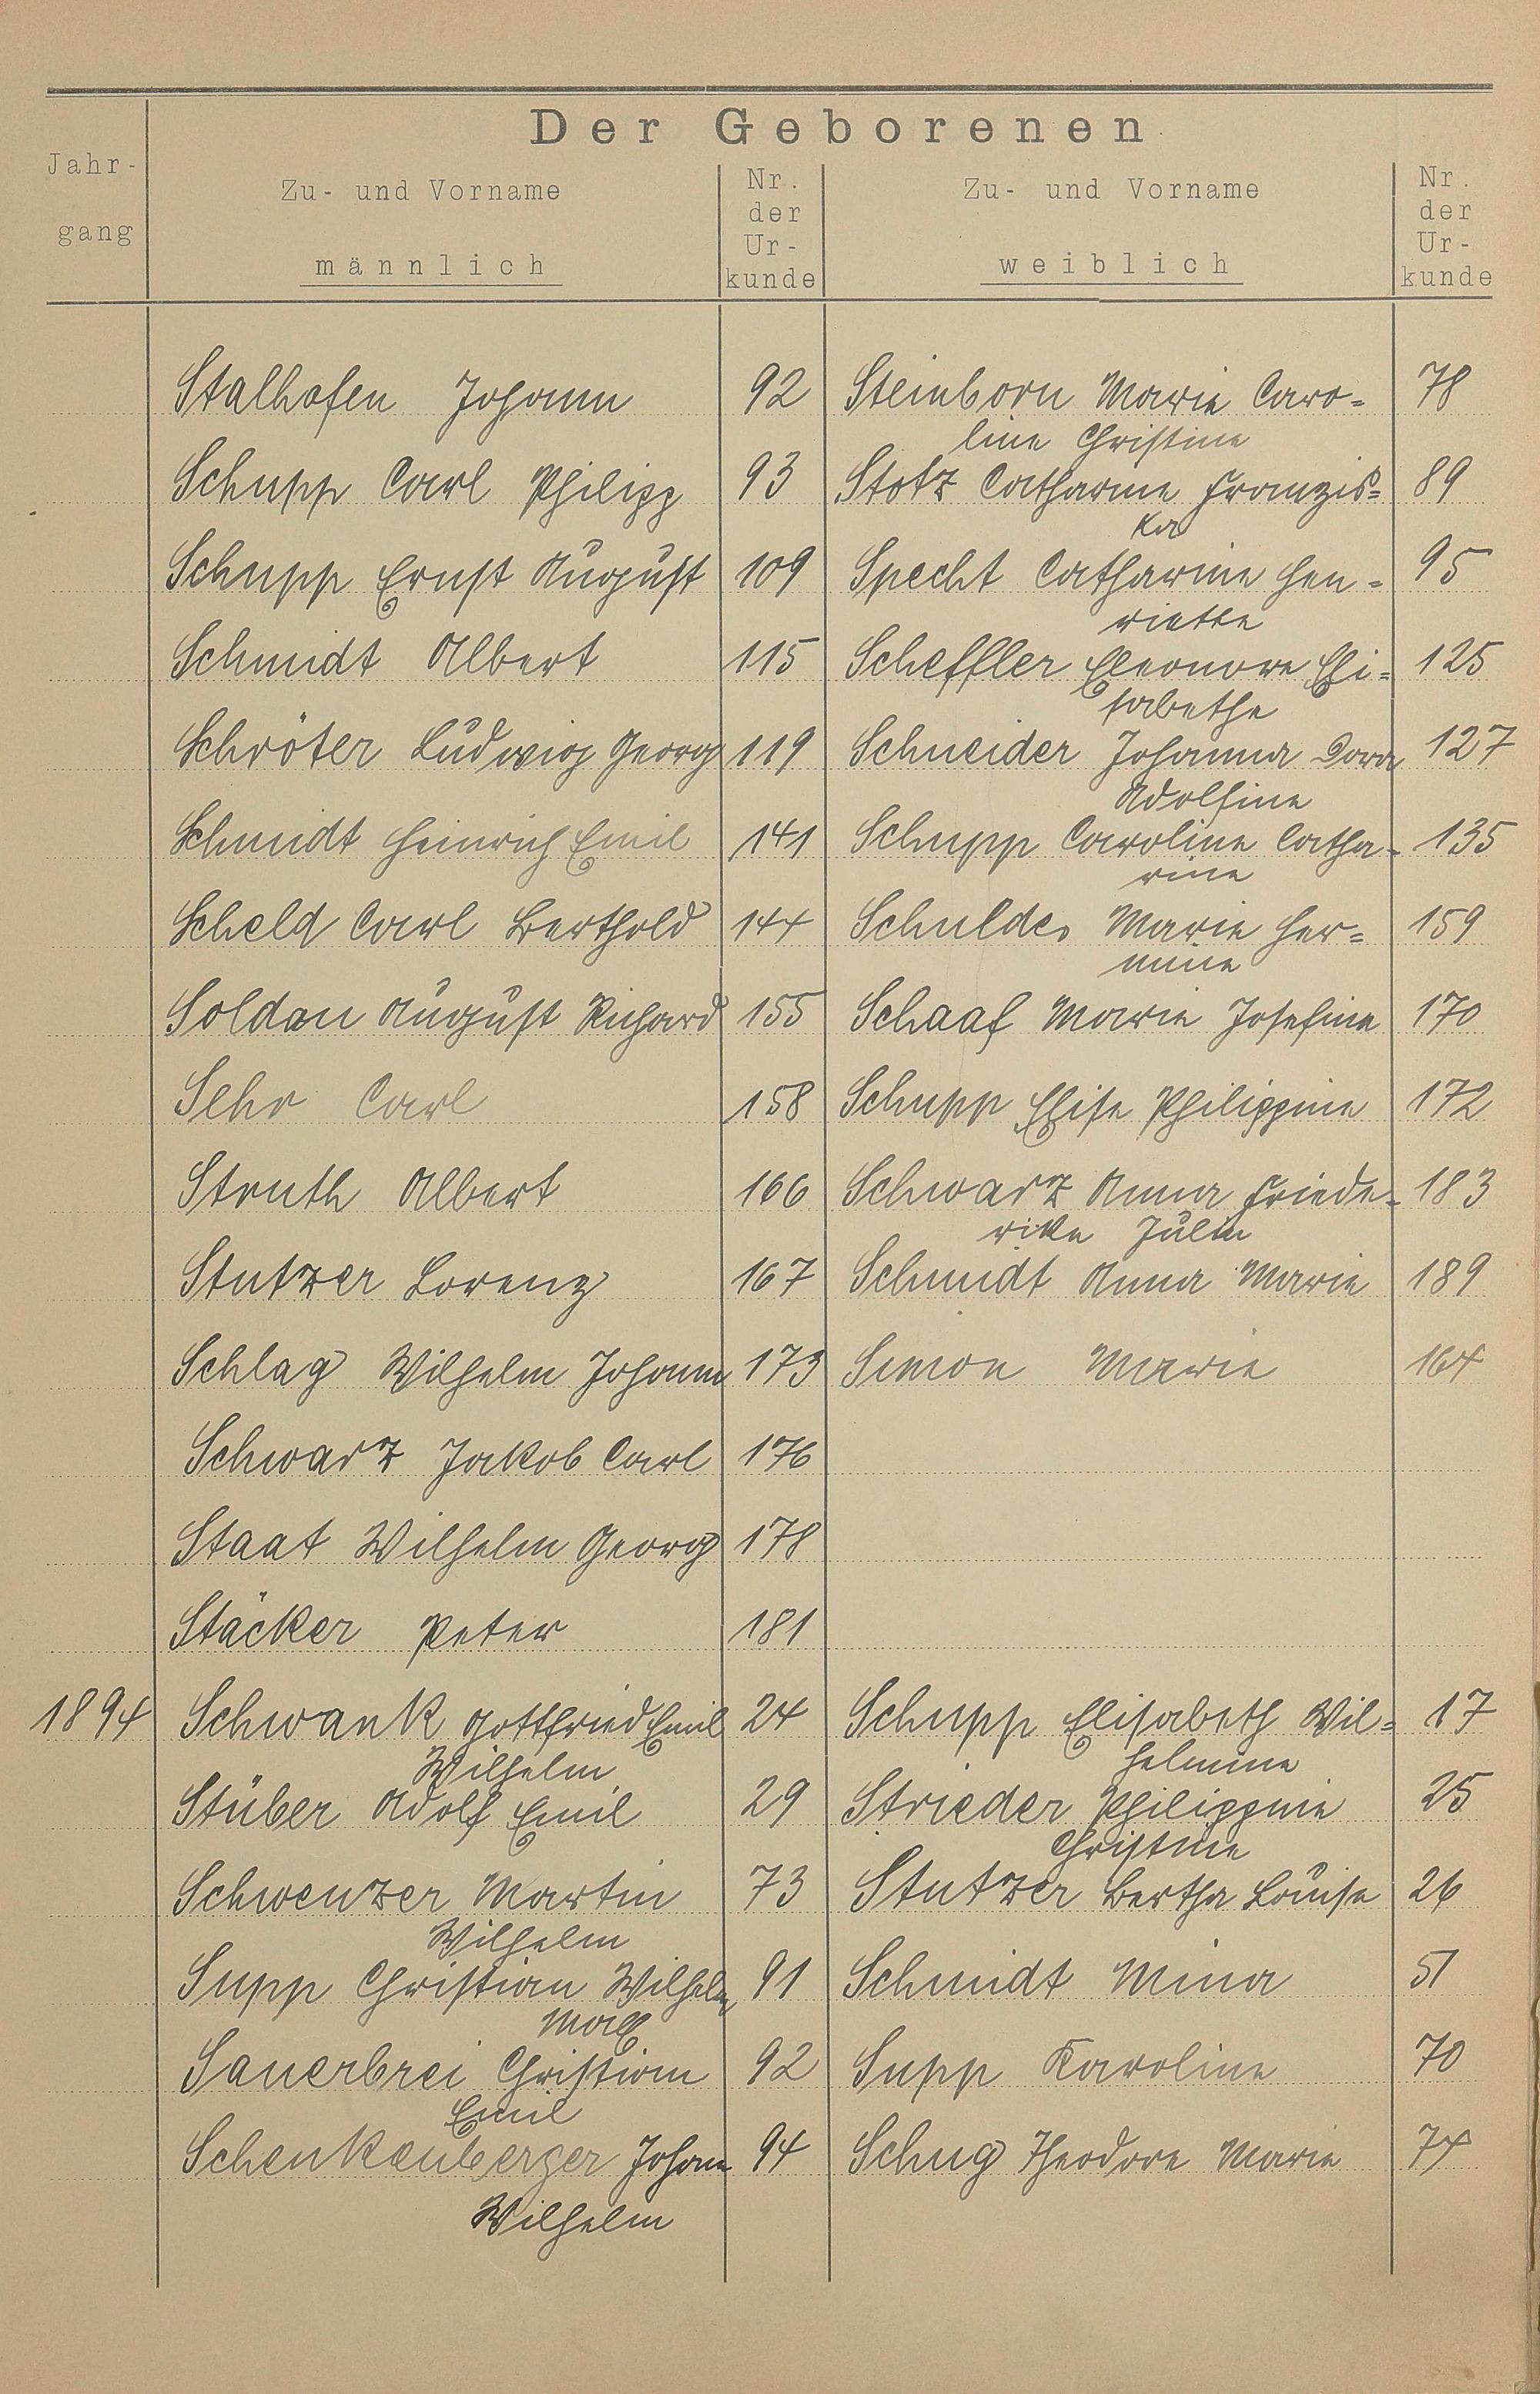 Der Geborenen
Jahr-
gang
Zu- und Vorname
männlich
Nr.
der
Ur-
kunde
Zu- und Vorname
weiblich
Nr.
der
Ur-
kunde
Stalhofen Johann 92 Steinborn Marie Caro= 78
line Christine
Schupp Carl Philipp 93 Stotz Catharine Franzis= 89
ka
Schupp Ernst August 109 Specht Catharine Hen= 95
riette
Schmidt Albert 115 Scheffler Eleonore Eli= 125
sabethe
Schröter Ludwig Georg 119 Schneider Johanna Dora 127
Adolfine
Schmidt Heinrich Emil 141 Schupp Caroline Catha- 135
rine
Scheld Carl Berthold 144 Schuldes Marie Her= 159
mine
Soldan August Richard 155 Schaaf Marie Josefine 170
Sehr Carl 158 Schupp Elise Philippine 172
Struth Albert 166 Schwarz Anna Friede- 183
rike Julie
Stutzer Lorenz 167 Schmidt Anna Marie 189
Schlag Wilhelm Johann 173 Simon Marie 164
Schwarz Jakob Carl 176
Staat Wilhelm Georg 178
Stäcker Peter 181
1894 Schwank Gottfried Emil 24 Schupp Elisabeth Wil= 17
Wilhelm helmine
Stüber Adolf Emil 29 Strieder Philippine 25
Christine
Schwenzer Martin 73 Stutzer Bertha Louise 26
Wilhelm
Supp Christian Wilhelm 91 Schmidt Mina 51
Max
Sauerbrei Christian 92 Supp Karoline 70
Emil
Schenkenberger Johann 94 Schug Theodore Marie 74
Wilhelm